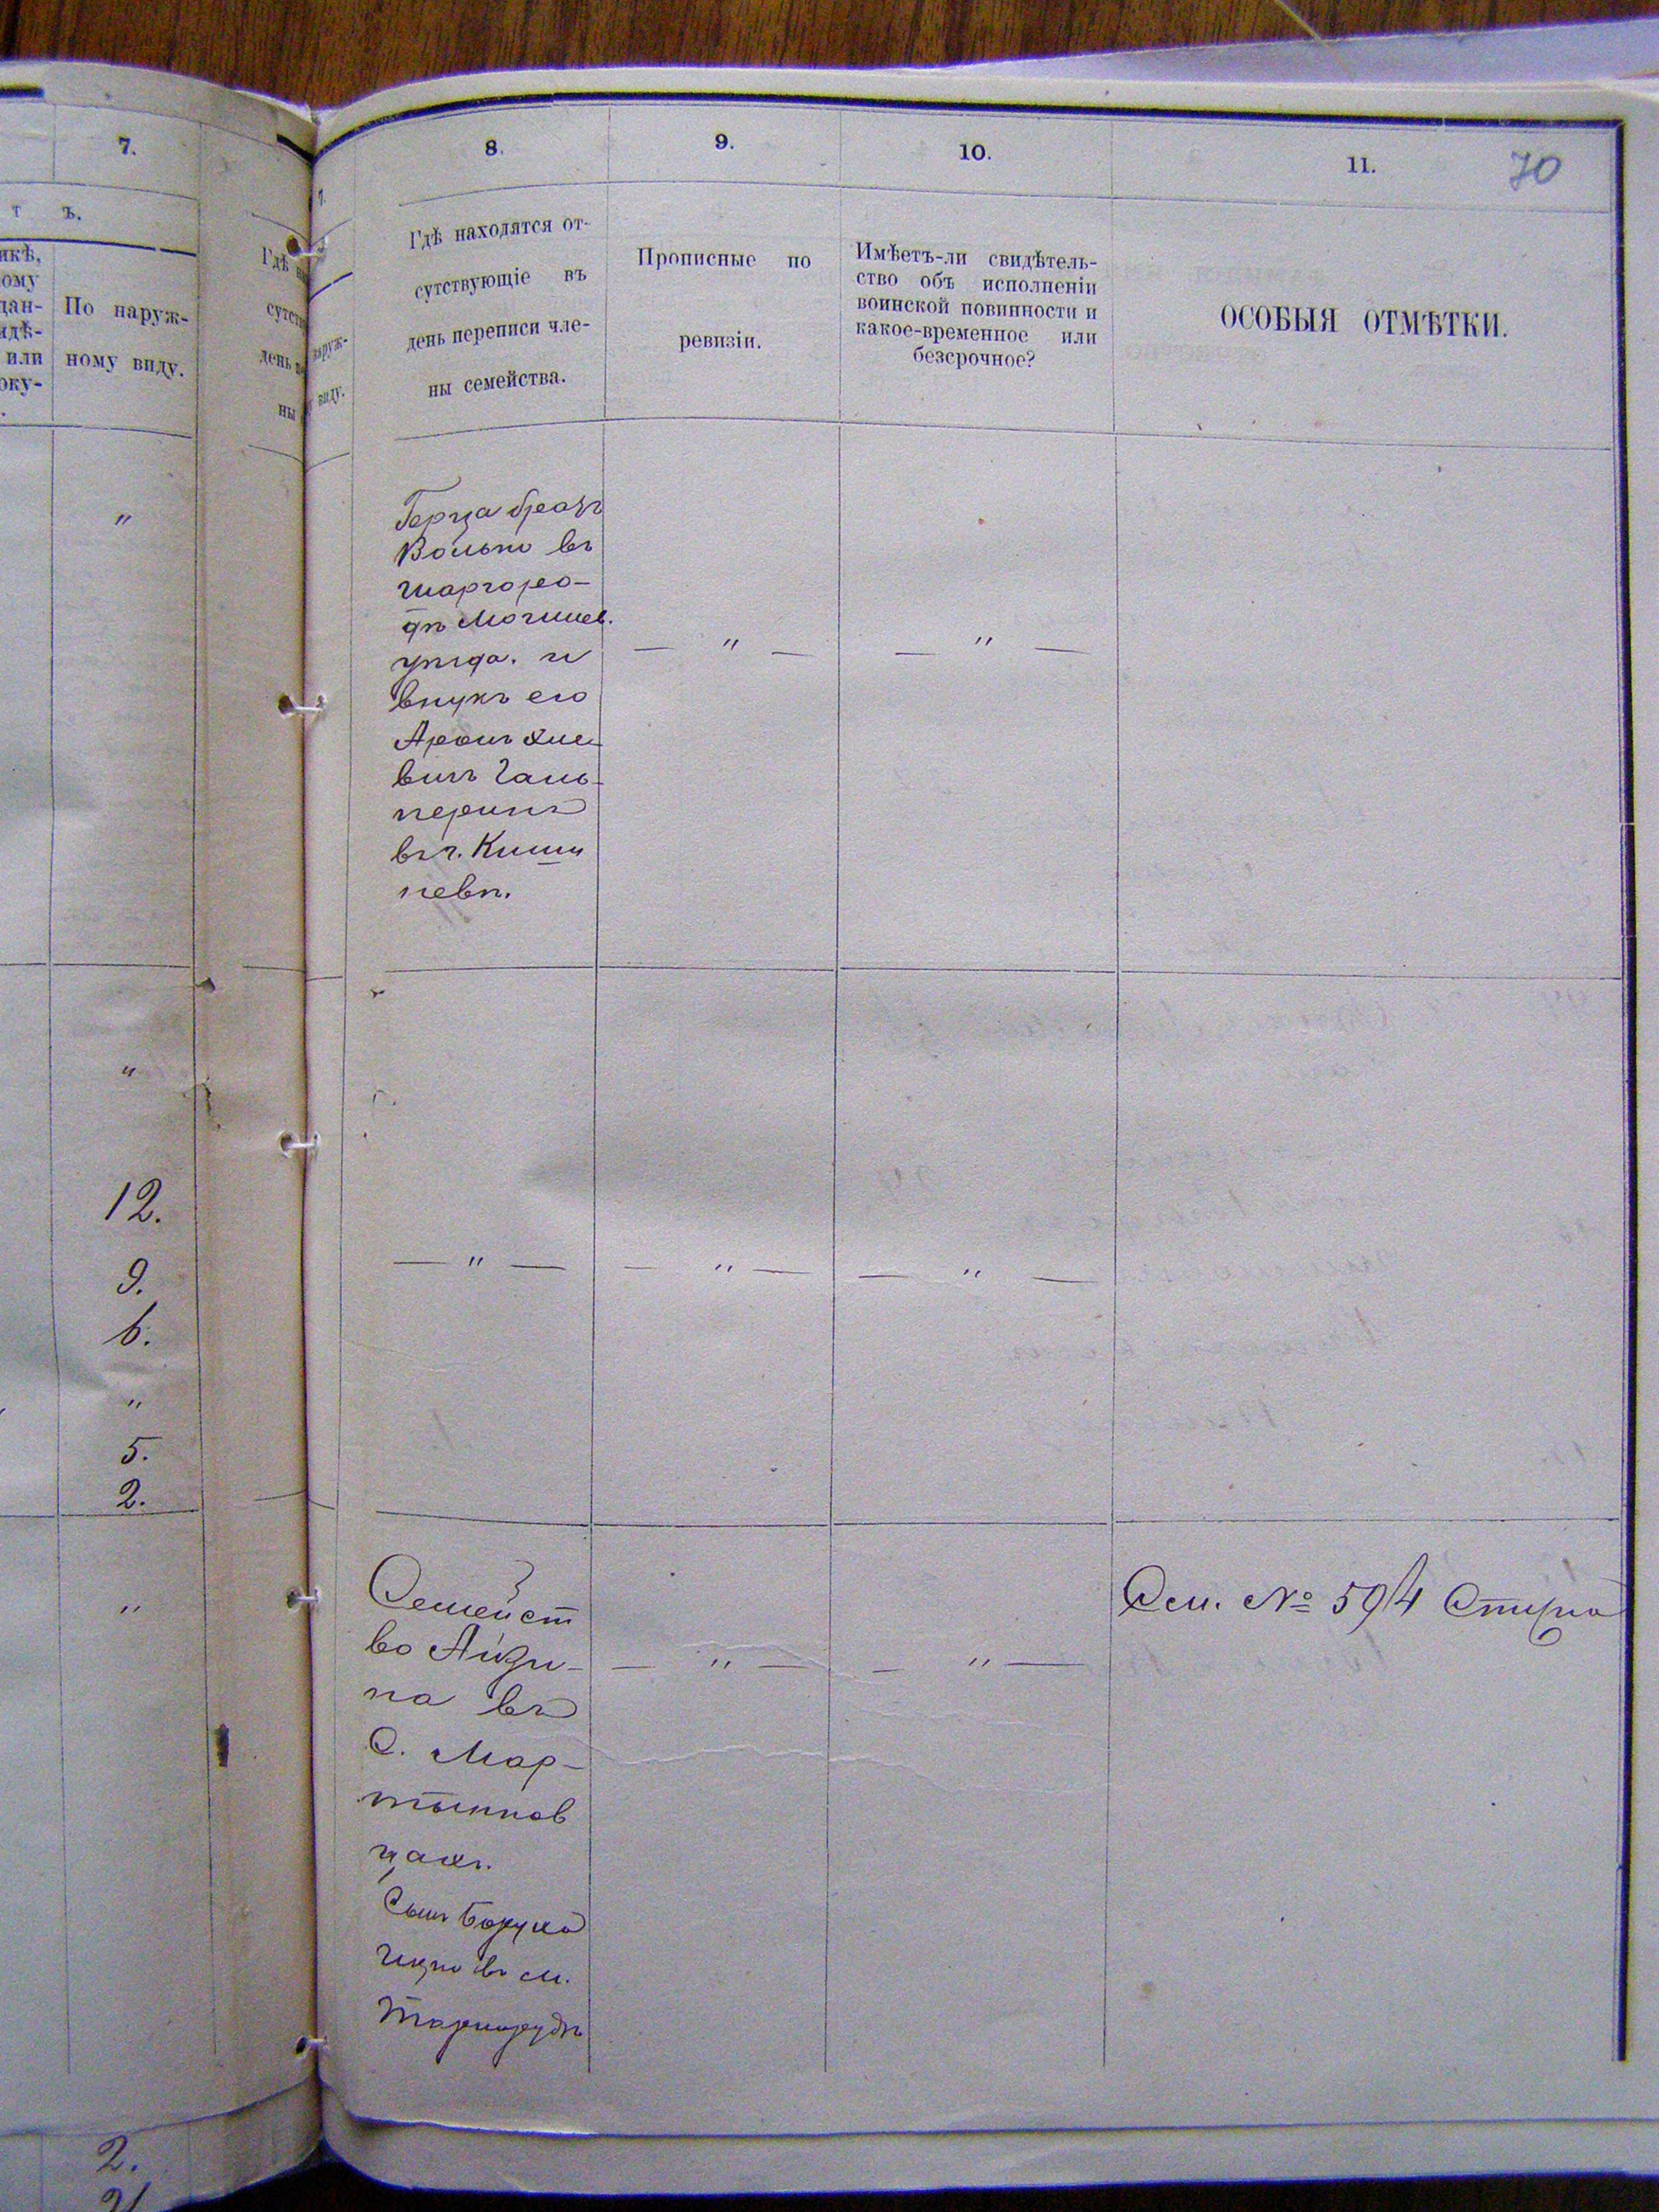 7.
т ъ.
икѣ,
ому
дан-
идѣ-
или
оку-
По наруж-
ному виду.
"
"
12.
9.
6.
"
5.
2.
"
2.
7.
Гдѣ
сутств
день
ны
наруж-
виду.
8.
9.
10.
11.
70
Гдѣ находятся от-
сутствующіе въ
день переписи чле-
ны семейства.
Прописные по
ревизіи.
Имѣетъ-ли свидѣтель-
ство объ исполненіи
воинской повинности и
какое-временное или
безсрочное?
ОСОБЫЯ ОТМѢТКИ.
Герца братъ
Волько въ
Шаргоро-
дѣ Могилев.
уѣзда. и
внукъ его
Аронъ
Галь-
перинъ
въ г. Киши
невѣ.
— " —
— " —
— " —
— " —
— " —
Семейст
во Айзи-
ка въ
С. Мар-
тынков
цахъ.
Сынъ Боруха
въ м.
— " —
— " —
Сем. № 594